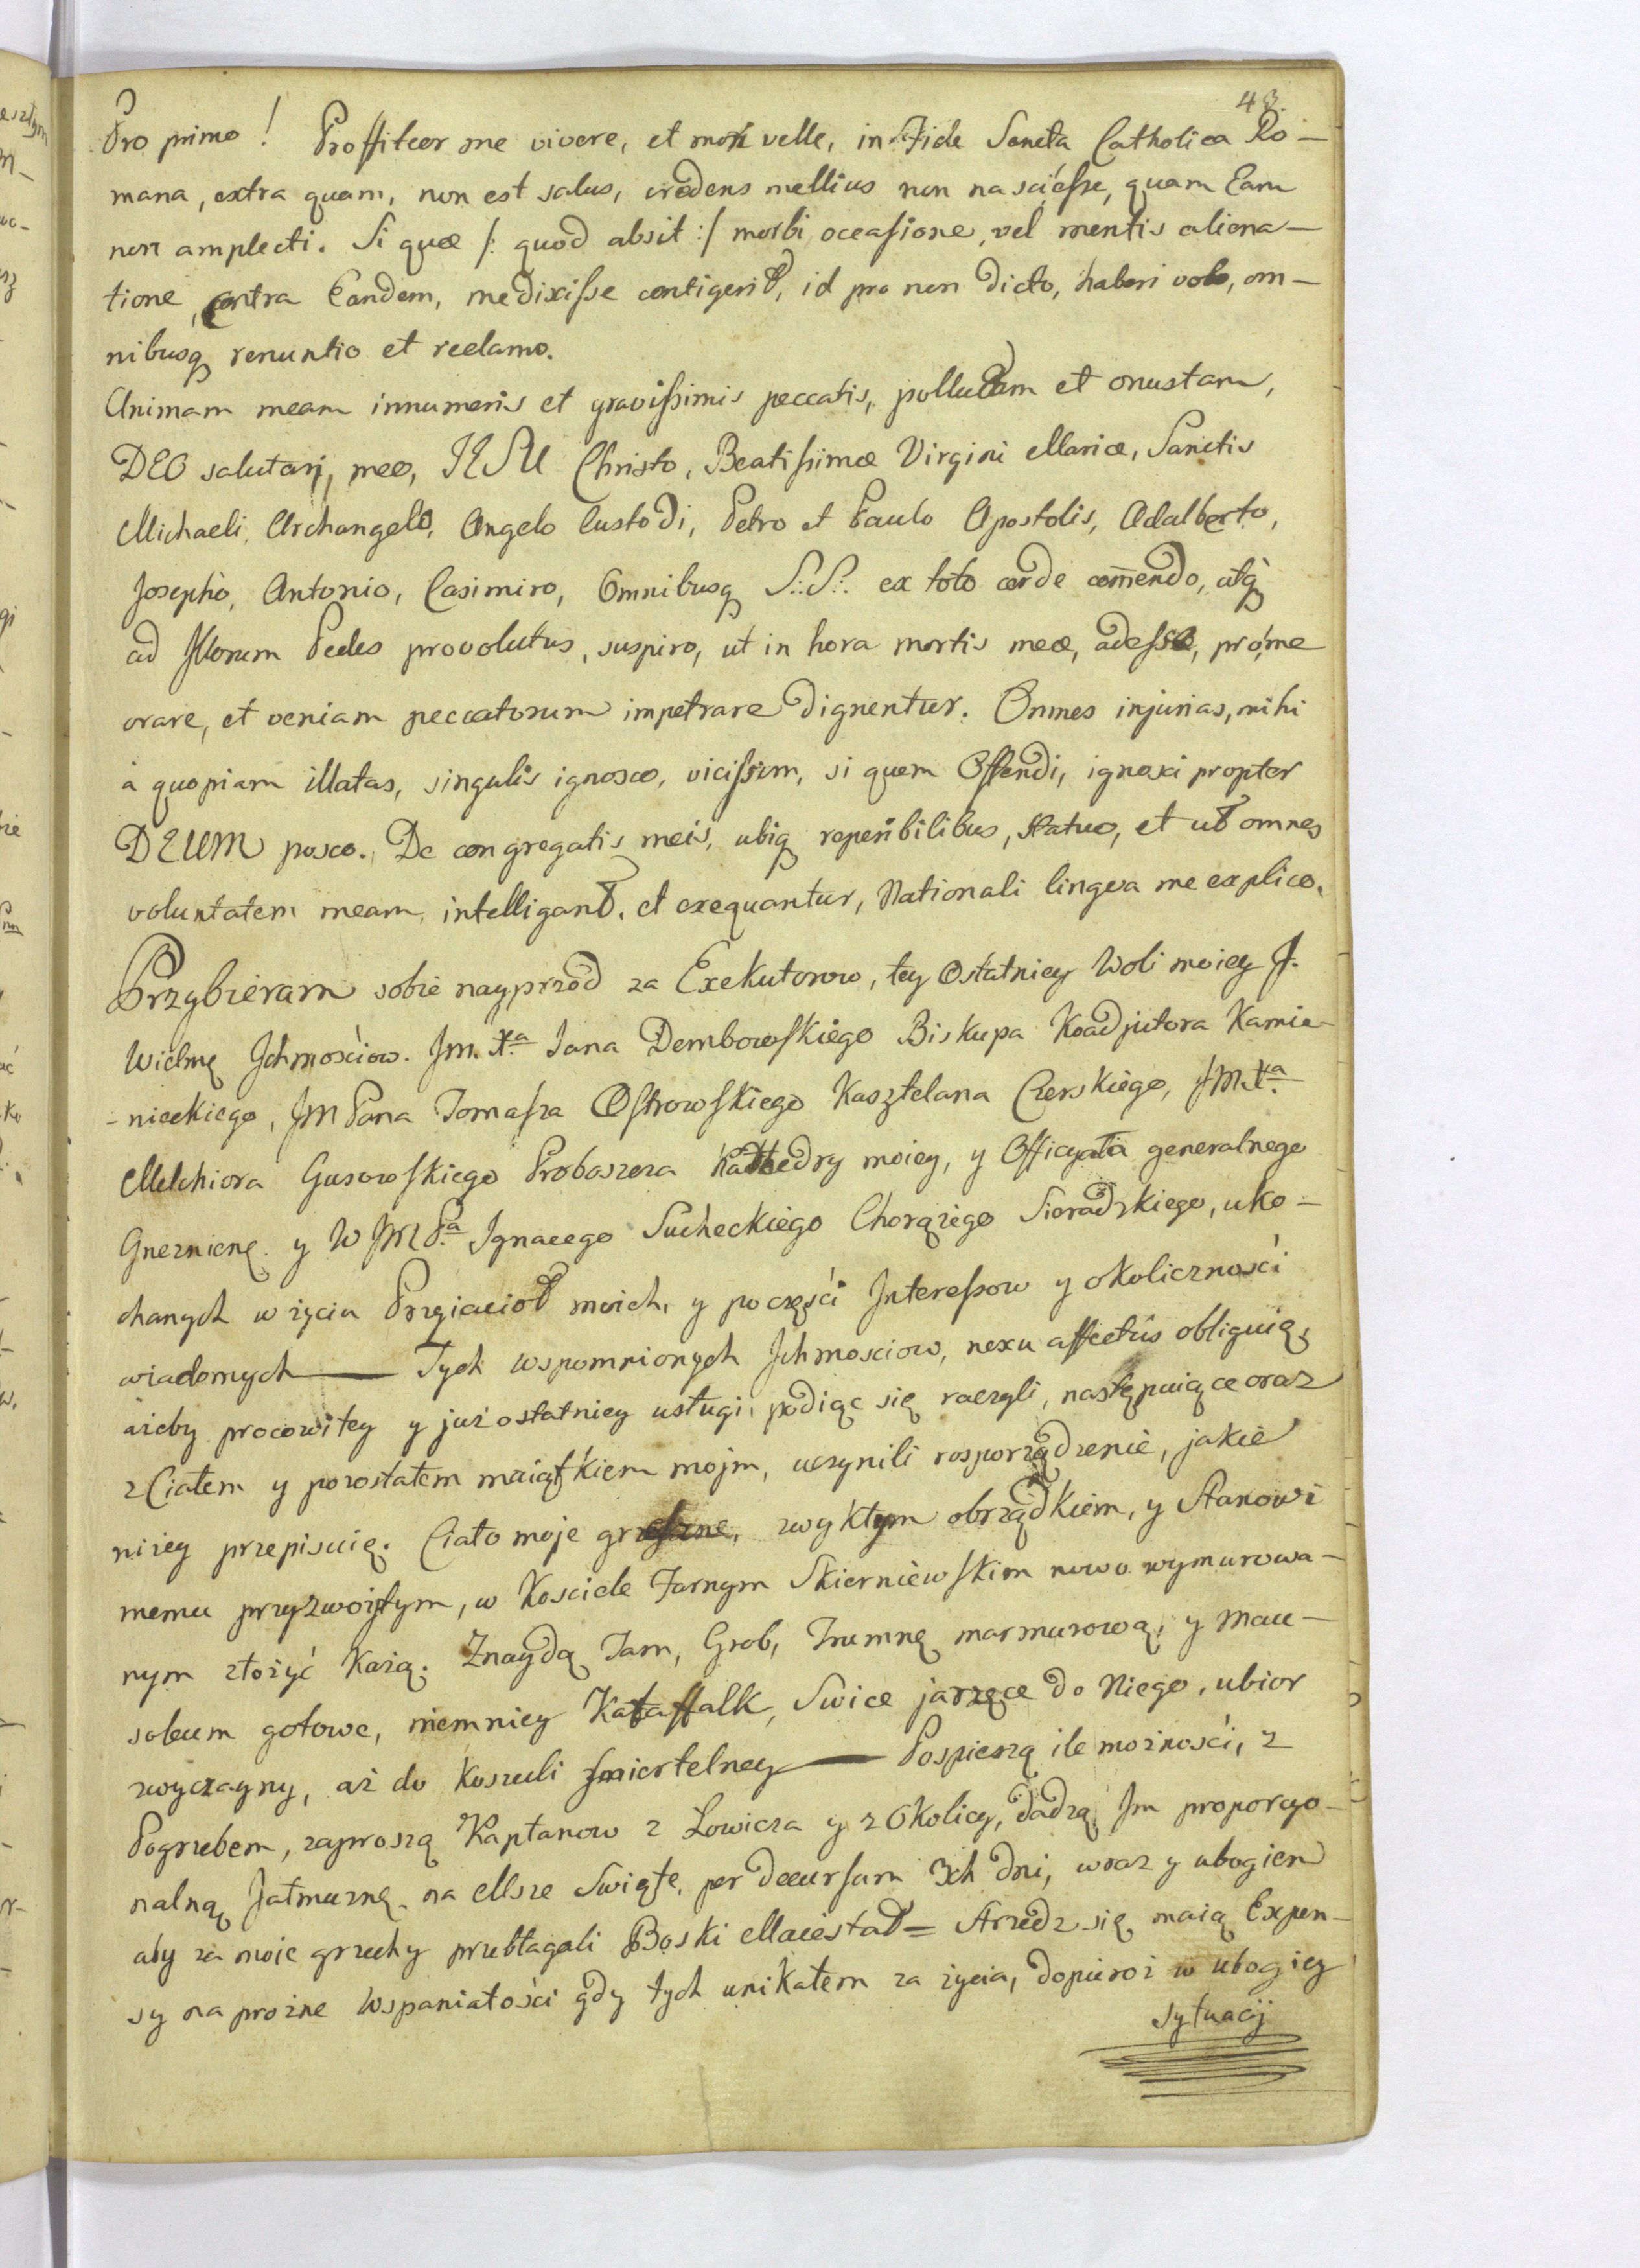 43.
Pro primo! Proffiteor me vivere, et mori velle, in Fide Sancta Catholica Ro-
mana, extra quam, non est salus, credens mellius non nasci esse, quam Eam
non amplecti. Si quæ /: quod absit :/ morbi occasione, vel mentis aliena-
tione, contra Eandem, me dixisse contigerit, id pro non dicto, haberi volo, om-
nibusq renuntio et reclamo.
Animam meam innumeris et gravissimis peccatis, pollutam et onustam,
DEO salutari, meo, JESU Christo, Beatissimæ Virgini Mariæ, Sanctis
Michaeli, Archangelo, Angelo Custodi, Petro et Paulo Apostolis, Adalberto,
Josepho, Antonio, Casimiro, Omnibusq S.:S.: ex toto corde com̄endo, atq
ad Illorum Pedes provolutus, suspiro, ut in hora mortis meæ, adesse, pro me
orare, et veniam peccatorum impetrare dignentur. Omnes injurias, mihi
à quopiam illatas, singulis ignosco, vicissim, si quem Offendi, ignosci propter
DEUM posco. De congregatis meis, ubiq reperibilibus, statuo, et ut omnes
voluntatem meam, intelligant, et exequantur, Nationali lingva me explico.
Przybieram sobie nayprzod za Exekutorow, tey Ostatniey Woli moiey J.
Wielmę Jchmosciow. Jm. Xa Jana Dembowskiego Biskupa Koadjutora Kamie-
-nieckiego, JM Pana Tomasza Ostrowskiego Kasztelana Czerskiego, JM. Xa
Melchiora Gusowskiego Proboszcza Kathedry moiey, y Officyała generalnego
Gnezninę. y W JM Pa Ignacego Sucheckiego Chorążego Sieradzkiego, uko-
chanych w życiu Przyiacioł moich, y po części Interessow y okoliczności
wiadomych — Tych wspomnionych Jchmosciow, nexu affectûs obliguię,
ażeby pracowitey y już ostatniey usługi, podiąc się raczyli, następuiące oraz
z Ciałem y pozostałem maiątkiem mojm, uczynili rosporządzenie, jakie
niżey przepisuię. Ciało moje grzeszne, zwykłym obrządkiem, y Stanowi
memu przyzwoitym, w Kosciele Farnym Skierniewskim nowo wymurowa-
nym złożyć każą. Znaydą Tam, Grob, Trumnę marmurową, y Mau-
soleum gotowe, niemniey Kataffalk, Swice jarzęce do Niego, ubior
zwyczayny, aż do koszuli smiertelney — Pospieszą ile możności, z
Pogrzebem, zaproszą Kapłanow z Łowicza y z Okolicy, dadzą Im proporcyo-
nalną Jałmużnę. na Msze Swięte, per decursum 3ch dni, wraz y ubogiem
aby za moie grzechy przebłagali Boski Maiestat = Strzedz się maią Expen-
sy na prożne wspaniałości gdy tych unikałem za życia, dopieroż w ubogiey
sytuacij